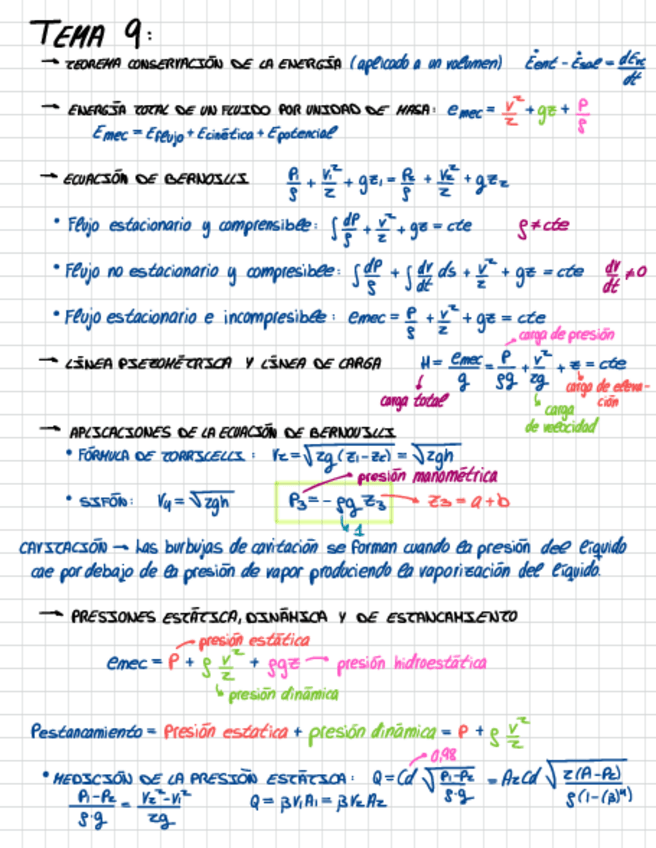 TEMA 9:
→ TEOREMA CONSERVACIÓN DE LA ENERGÍA (aplicado a un volumen) Ėent - Ėsal = dEvc/dt
→ ENERGÍA TOTAL DE UN FLUIDO POR UNIDAD DE MASA: emec = v²/2 + gz + P/ρ
Emec = Eflujo + Ecinética + Epotencial
→ ECUACIÓN DE BERNOILLI P₁/ρ + v₁²/2 + gz₁ = P₂/ρ + v₂²/2 + gz₂
• Flujo estacionario y comprensible: ∫dP/ρ + v²/2 + gz = cte ρ ≠ cte
• Flujo no estacionario y compresible: ∫dP/ρ + ∫dv/dt ds + v²/2 + gz = cte dv/dt ≠ 0
• Flujo estacionario e incompresible: emec = P/ρ + v²/2 + gz = cte
carga de presión
→ LÍNEA PIEZOMÉTRICA Y LÍNEA DE CARGA H = emec/g = P/ρg + v²/2g + z = cte
carga total carga de velocidad carga de elevación
→ APLICACIONES DE LA ECUACIÓN DE BERNOUILLI
• FÓRMULA DE TORRICELLI: V₂ = √2g(z₁-z₂) = √2gh
presión manométrica
• SIFÓN: V₄ = √2gh P₃ = - ρg z₃ → z₃ = a + b
↳ 1
CAVITACIÓN → Las burbujas de cavitación se forman cuando la presión del líquido
cae por debajo de la presión de vapor produciendo la vaporización del líquido.
→ PRESIONES ESTÁTICA, DINÁMICA Y DE ESTANCAMIENTO
presión estática
emec = P + ρ v²/2 + ρgz → presión hidroestática
↳ presión dinámica
Pestancamiento = Presión estatica + presión dinámica = P + ρ v²/2
0,98
• MEDICIÓN DE LA PRESIÓN ESTÁTICA: Q = Cd √(P₁-P₂)/(ρ·g) = A₂Cd √2(P₁-P₂)/(ρ(1-(β)⁴))
(P₁-P₂)/(ρ·g) = (V₂²-V₁²)/2g Q = βV₁A₁ = βV₂A₂